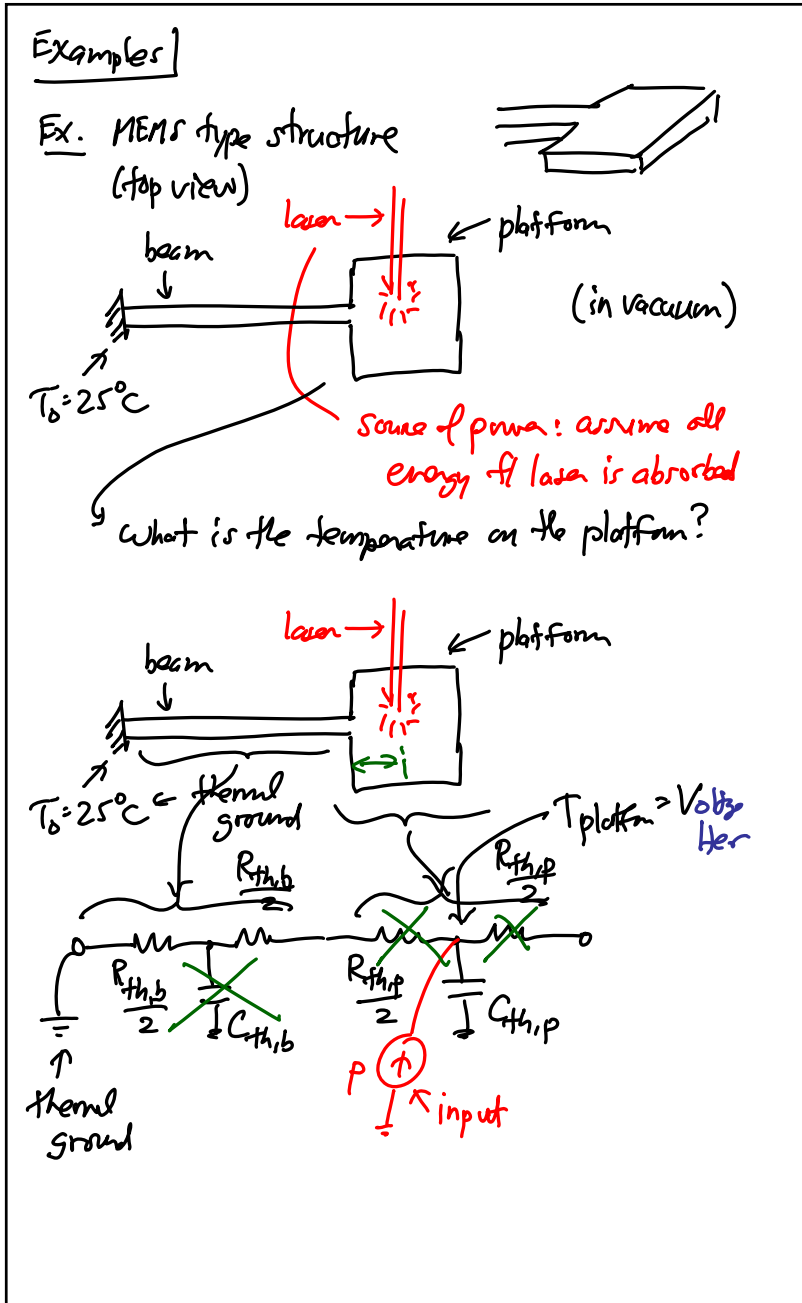 Examples
Ex. MEMS type structure
(top view)
laser →
← platform
beam
(in vacuum)
T₀ = 25°C
source of power: assume all
energy f/ laser is absorbed
What is the temperature on the platform?
laser →
← platform
beam
T₀ = 25°C ← thermal
ground
T platform = V
here
R_th,b/2
R_th,p/2
R_th,b/2
C_th,b
R_th,p/2
C_th,p
P
input
thermal
ground